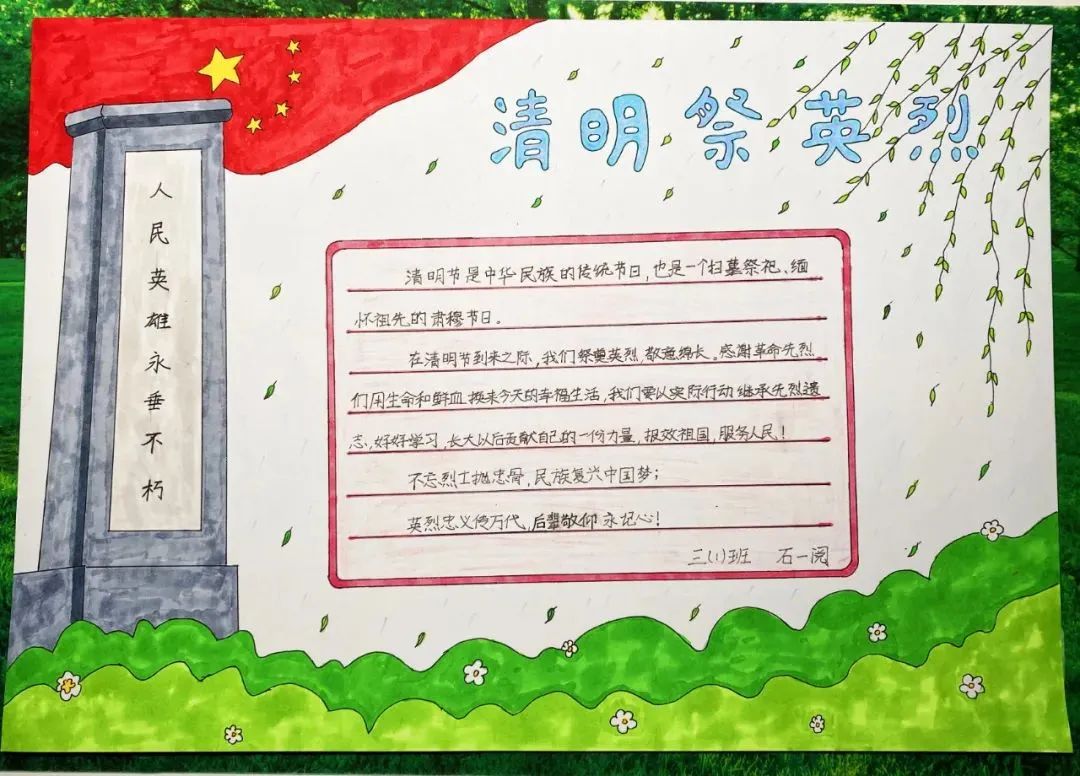 清明祭英烈
人民英雄永垂不朽
清明节是中华民族的传统节日,也是一个扫墓祭祀、缅
怀祖先的肃穆节日。
在清明节到来之际,我们祭奠英烈,敬意绵长。感谢革命先烈
们用生命和鲜血换来今天的幸福生活,我们要以实际行动继承先烈遗
志,好好学习,长大以后贡献自己的一份力量,报效祖国,服务人民!
不忘烈士抛忠骨,民族复兴中国梦;
英烈忠义传万代,后辈敬仰永记心!
三(1)班 石一阅